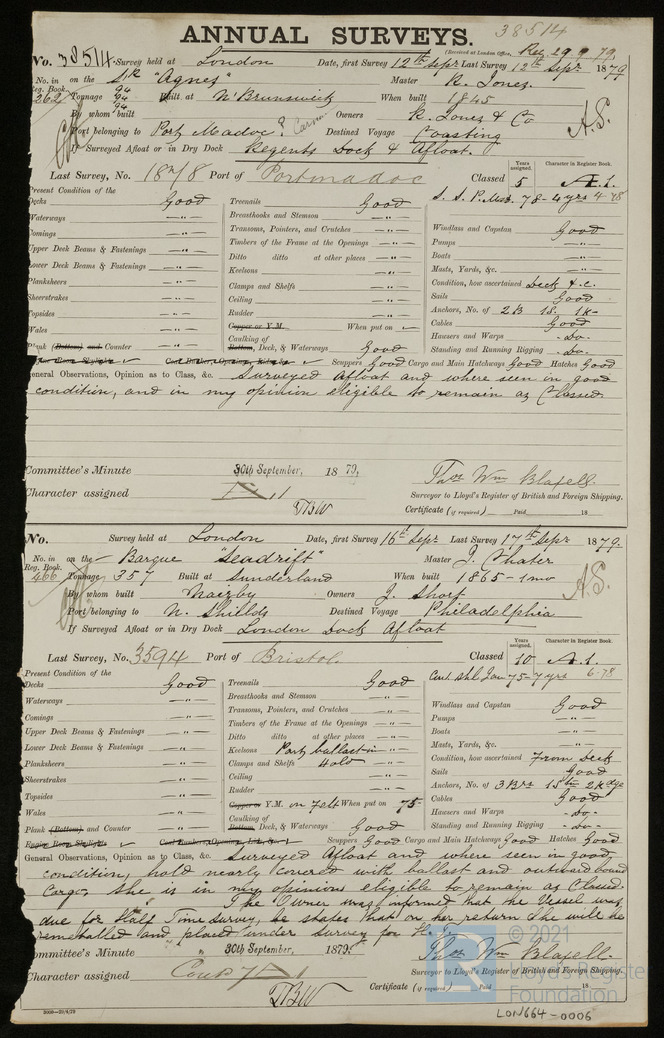 38514
ANNUAL SURVEYS.
(Received at London Office, Rec 29 9 79.
No. 38514. Survey held at London Date, first Survey 12th Sepr Last Survey 12th Sepr 1879
No. in Reg. Book. on the Sr "Agnes" Master R. Jones.
262 Tonnage 94 94 94 Built at N'Brunswick When built 1845
By whom built Owners R. Jones & Co A.S.
Port belonging to Port Madoc? Destined Voyage Coasting
If Surveyed Afloat or in Dry Dock Regents Dock & Afloat.
Last Survey, No. Port of Portmadoc Classed Years assigned. 5 Character in Register Book. A.1.
Present Condition of the
Decks Good Treenails Good S. S. P.Mc 78-4 yrs 4-78
Waterways - " - Breasthooks and Stemson - " -
Comings - " - Transoms, Pointers, and Crutches - " - Windlass and Capstan Good
Upper Deck Beams & Fastenings - " - Timbers of the Frame at the Openings - " - Pumps - " -
Lower Deck Beams & Fastenings - " - Ditto ditto at other places - " - Boats - " -
Keelsons - " - Masts, Yards, &c. - " -
Planksheers - " - Clamps and Shelfs - " - Condition, how ascertained Deck & c.
Sheerstrakes - " - Ceiling - " - Sails Good
Topsides - " - Rudder - " - Anchors, No. of 2B 1S. 1K-
Wales - " - Copper or Y.M. When put on Cables Good
Plank (Bottom) and Counter - " - Caulking of Bottom, Deck, & Waterways Good Hawsers and Warps - Do.
Standing and Running Rigging - Do.
Scuppers Good Cargo and Main Hatchways Good Hatches Good
General Observations, Opinion as to Class, &c. Surveyed Afloat and where seen in good
condition, and in my opinion eligible to remain as Classed.
Committee's Minute 30th September, 1879. Thos Wm Blaxell.
Character assigned Surveyor to Lloyd's Register of British and Foreign Shipping.
Certificate (if required) Paid 18
No. Survey held at London Date, first Survey 16th Sepr Last Survey 17th Sepr 1879.
No. in Reg. Book. on the Barque "Seadrift" Master J. Thater
466 Tonnage 357 Built at Sunderland When built 1865-1mo
By whom built Naizby Owners J. Short A.S.
Port belonging to N. Shields Destined Voyage Philadelphia
If Surveyed Afloat or in Dry Dock London Dock Afloat
Last Survey, No. 3594 Port of Bristol. Classed Years assigned. 10 Character in Register Book. A.1.
Present Condition of the Cont. Shl. Jan 75-7 yrs 6-78
Decks Good Treenails Good
Waterways - " - Breasthooks and Stemson - " - Windlass and Capstan Good
Comings - " - Transoms, Pointers, and Crutches - " - Pumps - " -
Upper Deck Beams & Fastenings - " - Timbers of the Frame at the Openings - " - Boats - " -
Ditto ditto at other places - " -
Lower Deck Beams & Fastenings - " - Keelsons Party ballast in - " - Masts, Yards, &c. - " -
Planksheers - " - Clamps and Shelfs Hold - " - Condition, how ascertained From Deck
Sheerstrakes - " - Ceiling - " - Sails Good
Topsides - " - Rudder - " - Anchors, No. of 3Brs 1Stm 2Kdge
Wales - " - Copper or Y.M. on Felt When put on 75- Cables Good
Plank (Bottom) and Counter - " - Caulking of Bottom, Deck, & Waterways Good Hawsers and Warps - Do -
Standing and Running Rigging - Do -
Scuppers Good Cargo and Main Hatchways Good Hatches Good
General Observations, Opinion as to Class, &c. Surveyed Afloat and where seen in good
condition, hold nearly covered with ballast and outward bound
Cargo, she is in my opinion eligible to remain as Classed.
The Owner was informed that the Vessel was
due for Half Time Survey, he states that on her return she will be
remetalled and placed under survey for H.T.
Committee's Minute 30th September, 1879. Thos Wm Blaxell.
Character assigned Surveyor to Lloyd's Register of British and Foreign Shipping.
Certificate (if required) Paid 18
© 2021
Lloyd's Register
Foundation
LON664-0006